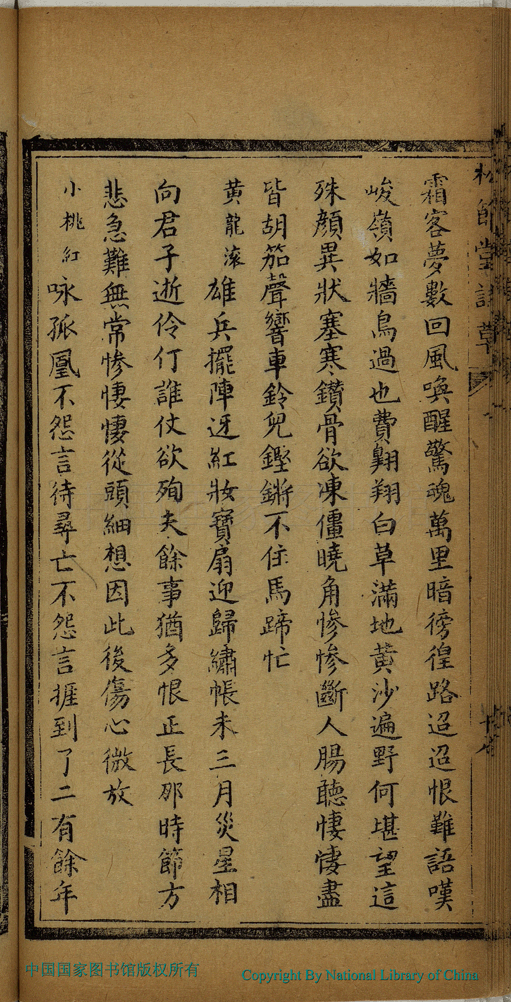 霜客夢數回風喚醒驚魂萬里暗徬徨路迢迢恨難語嘆
峻嶺如牆鳥過也費翺翔白草滿地黄沙遍野何堪望這
殊顏異狀塞寒鑚骨欲凍僵曉角慘慘斷人腸聽悽悽盡
皆胡笳聲響車鈴兒鏗鏘不住馬蹄忙
黄龍滚 雄兵擺陣迓紅妝寶扇迎歸繡帳未三月災星相
向君子逝伶仃誰仗欲殉夫餘事猶多恨正長那時節方
悲急難無常慘悽悽從頭細想因此後傷心微放
小桃紅 咏孤凰不怨言待尋亡不怨言捱到了二有餘年
中国国家图书馆版权所有
Copyright By National Library of China